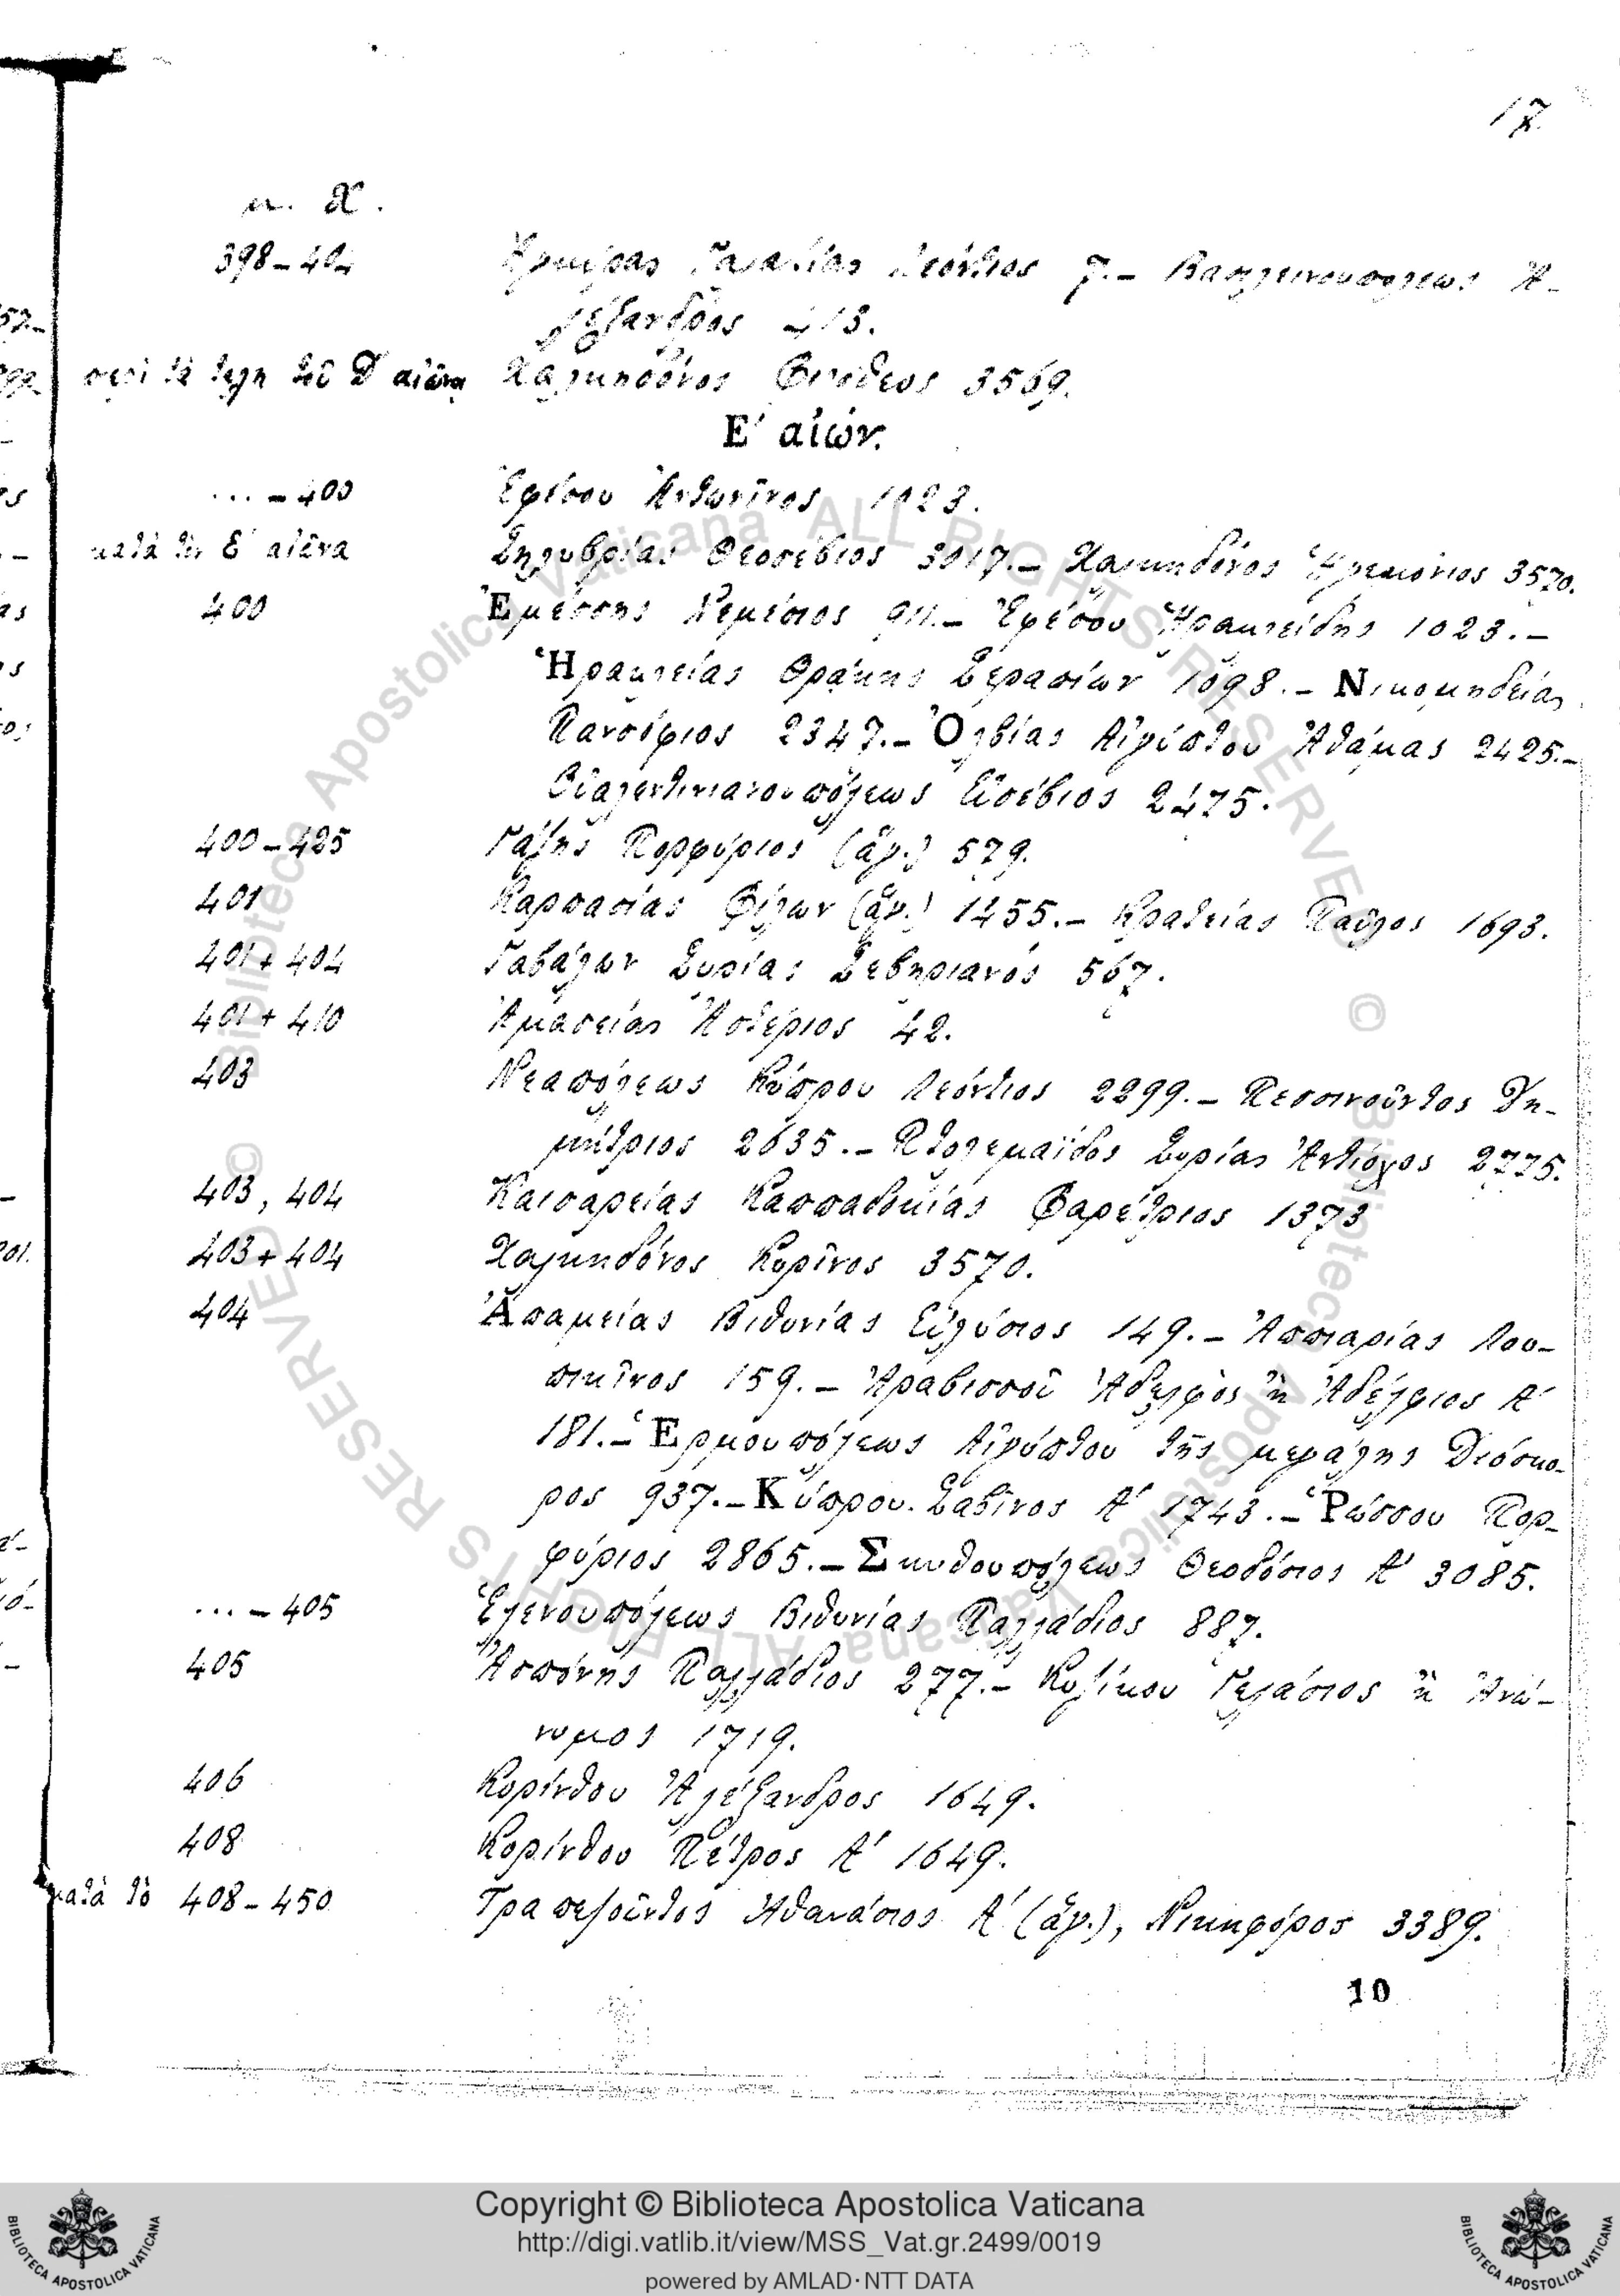 17
μ. Χ.
398-404 Ἀγκύρας Γαλατίας Λεόντιος 7.- Βασιλεινουπόλεως Ἀ-
λέξανδρος 413.
περὶ τὰ τέλη τοῦ Δ' αἰῶνα Χαλκηδόνος Φιλόθεος 3569.
Ε' αἰών.
...-400 Ἐφέσου Ἀντωνῖνος 1023.
κατὰ τὸν Ε' αἰῶνα Σηλυβρίας Θεοσέβιος 3017.- Χαλκηδόνος 3570.
400 Ἐμέσσης Νεμέσιος 911.- Ἐφέσου Ἡρακλείδης 1023.-
Ἡρακλείας Θρᾴκης Σεραπίων 1098.- Νικομηδείας
Πανσόφιος 2347.- Ὀλβίας Αἰγύπτου Ἀθάμας 2425.-
Οὐαλεντινιανουπόλεως Εὐσέβιος 2475.
400-425 Γάζης Πορφύριος (ἅγ.) 579.
401 Καρπασίας Φίλων (ἅγ.) 1455.- Κρατείας Παῦλος 1693.
401+404 Γαβάλων Συρίας Σεβηριανός 567.
401+410 Ἀμασείας Ἀστέριος 42.
403 Νεαπόλεως Κύπρου Λεόντιος 2299.- Πεσσινοῦντος Δη-
μήτριος 2635.- Πτολεμαΐδος Συρίας Ἀντίοχος 2775.
403, 404 Καισαρείας Καππαδοκίας Φαρέτριος 1373
403+404 Χαλκηδόνος Κυρῖνος 3570.
404 Ἀπαμείας Βιθυνίας Εὐλύσιος 149.- Ἀππιαρίας Λου-
πικῖνος 159.- Ἀραβισσοῦ Ἀδελφὸς ἢ Ἀδέλφιος Α'
181.- Ἑρμουπόλεως Αἰγύπτου τῆς μεγάλης Διόσκο-
ρος 937.- Κύπρου. Σαβῖνος Α' 1743.- Ῥώσσου Πορ-
φύριος 2865.- Σκυθουπόλεως Θεοδόσιος Α' 3085.
...-405 Ἑλενουπόλεως Βιθυνίας Παλλάδιος 887.
405 Ἀσπόνης Παλλάδιος 277.- Κυζίκου Γελάσιος ἢ Ἀνώ-
νυμος 1719.
406 Κορίνθου Ἀλέξανδρος 1649.
408 Κορίνθου Πέτρος Α' 1649.
κατὰ τὸ 408-450 Τραπεζοῦντος Ἀθανάσιος Α' (ἅγ.), Νικηφόρος 3389.
10
© Biblioteca Apostolica Vaticana ALL RIGHTS RESERVED
© Biblioteca Apostolica Vaticana ALL RIGHTS RESERVED
Copyright © Biblioteca Apostolica Vaticana
http://digi.vatlib.it/view/MSS_Vat.gr.2499/0019
powered by AMLAD·NTT DATA
BIBLIOTECA APOSTOLICA VATICANA
BIBLIOTECA APOSTOLICA VATICANA